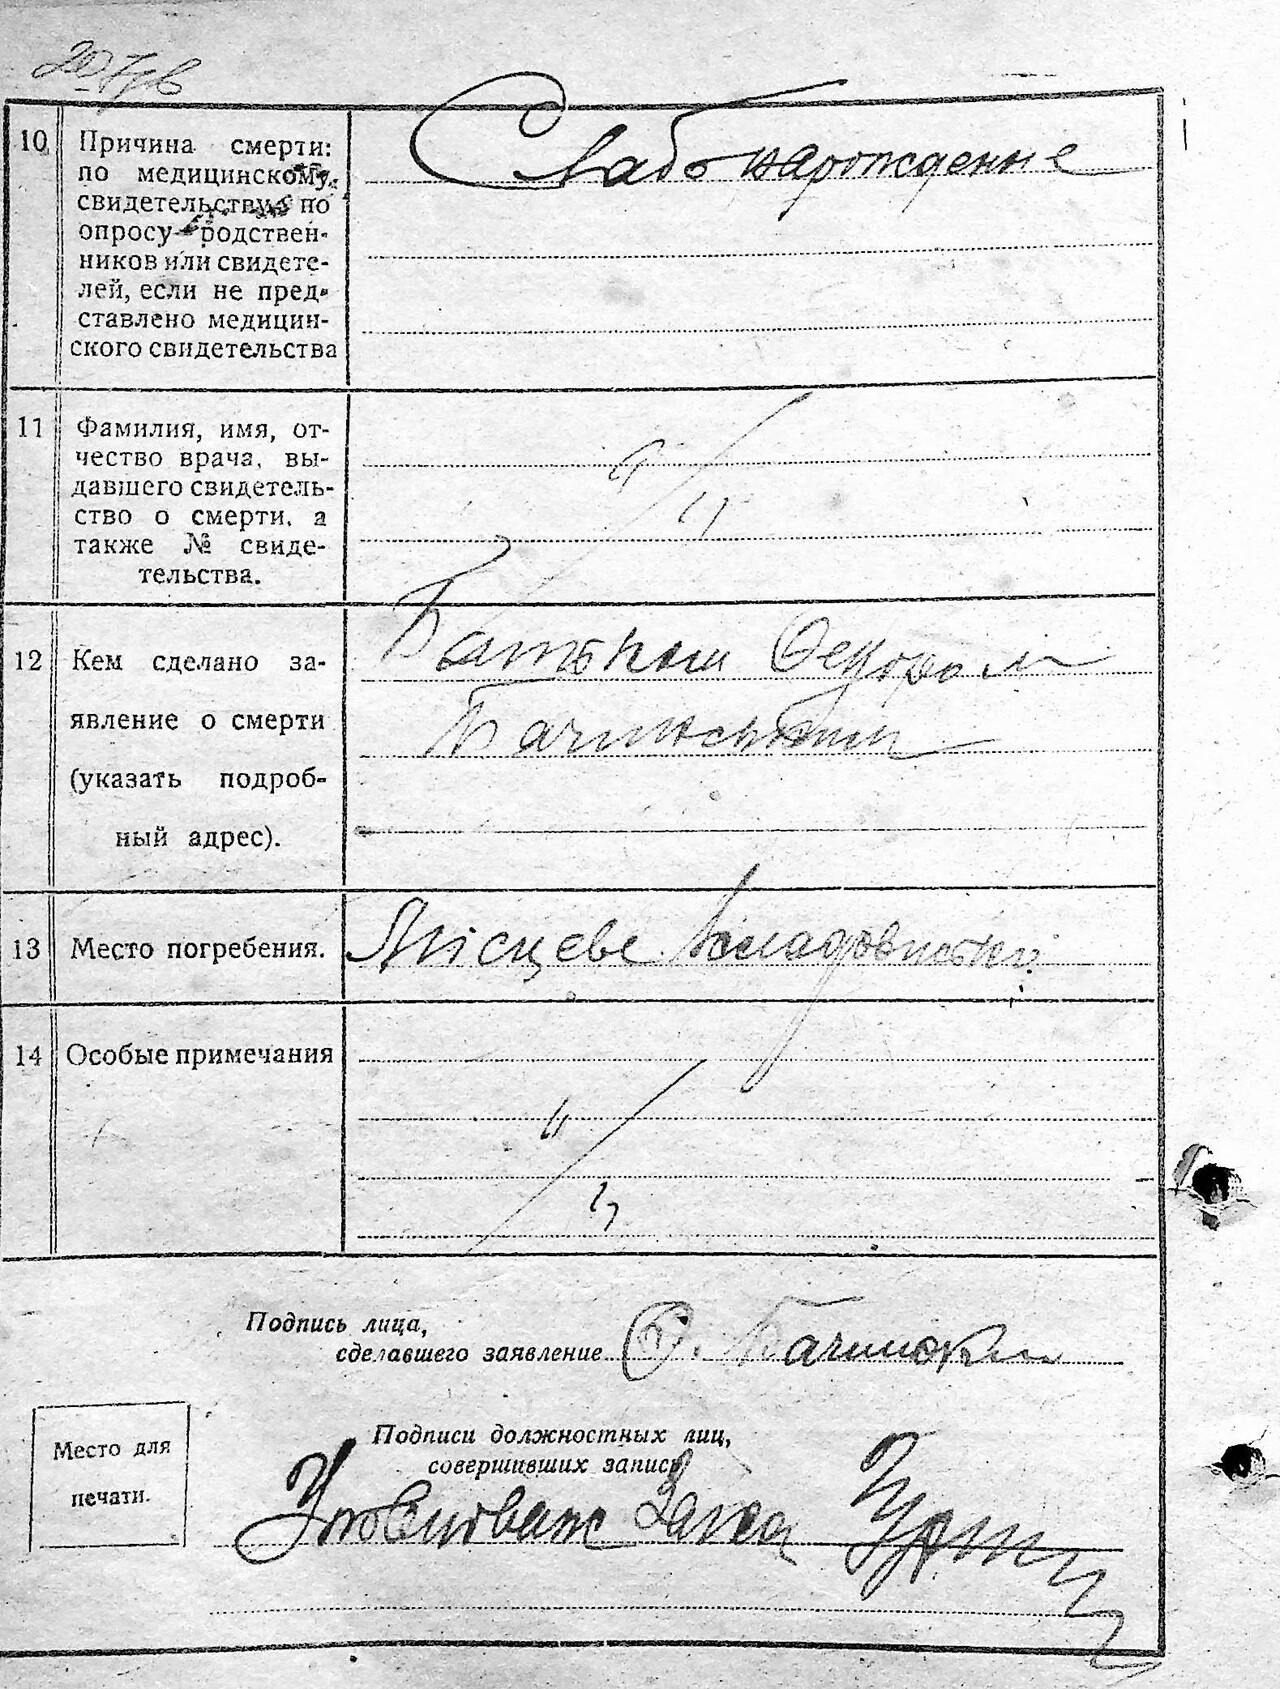 10 Причина смерти:
по медицинскому
свидетельству по
опросу родствен-
ников или свидете-
лей, если не пред-
ставлено медицин-
ского свидетельства
Слабонарожденые
11 Фамилия, имя, от-
чество врача, вы-
давшего свидетель-
ство о смерти, а
также № свиде-
тельства.
12 Кем сделано за-
явление о смерти
(указать подроб-
ный адрес).
Батьком Федором
13 Место погребения. Місцеве кладовище
14 Особые примечания
Подпись лица,
сделавшего заявление
Подписи должностных лиц,
совершивших запись
Место для
печати.
Загса